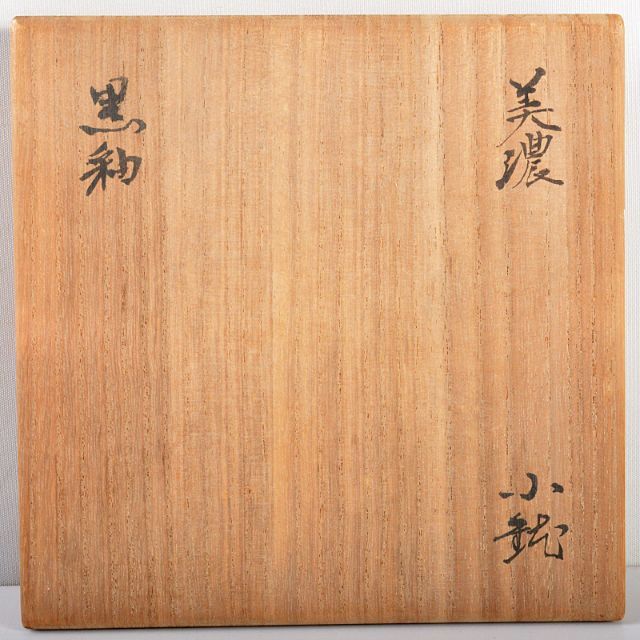 美濃
小鉢
黒釉